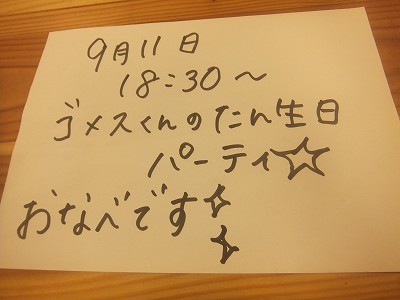 9月11日
18:30～
ゴメスくんのたん生日
パーティ☆
おなべです